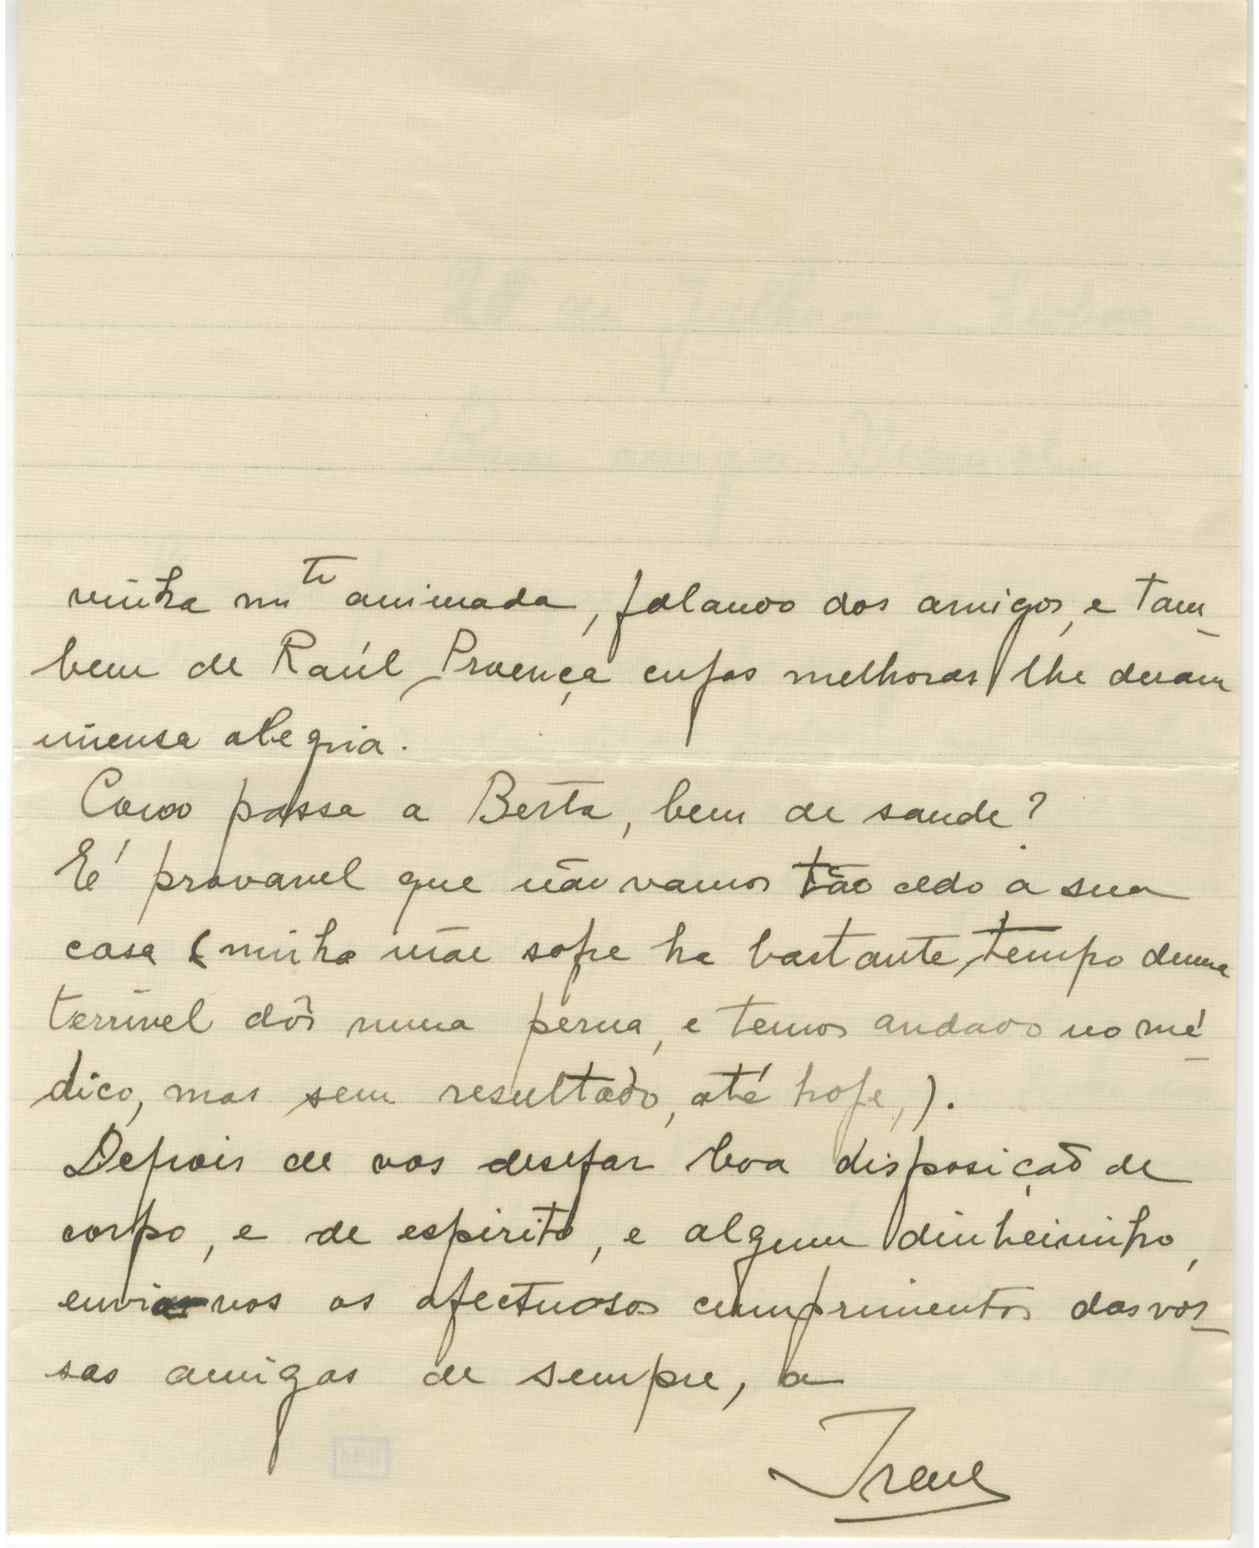 vinha mto animada, falando dos amigos, e tam_
bem de Raúl Proença cujas melhoras lhe deram
imensa alegria.
Como passa a Berta, bem de saude?
É provavel que não vamos tão cedo a sua
casa (minha mãe sofre ha bastante tempo duma
terrivel dôr numa perna, e temos andado no mé_
dico, mas sem resultado, até hoje,).
Depois de vos desejar boa disposição de
corpo, e de espirito, e algum dinheirinho,
envia-vos os afectuosos cumprimentos das vos_
sas amigas de sempre, a
Irene